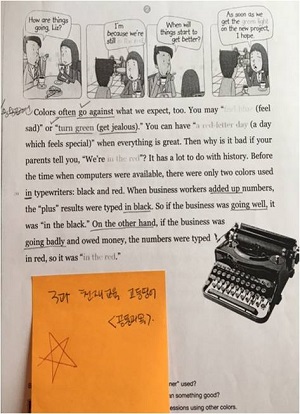 How are things
going, Liz?
I'm
because we're
still in the red.
When will
things start to
get better?
As soon as we
get the green light
on the new project,
I hope.
Colors often go against what we expect, too. You may "feel blue (feel
sad)" or "turn green (get jealous)." You can have "a red-letter day (a day
which feels special)" when everything is great. Then why is it bad if your
parents tell you, "We're in the red"? It has a lot to do with history. Before
the time when computers were available, there were only two colors used
in typewriters: black and red. When business workers added up numbers,
the "plus" results were typed in black. So if the business was going well, it
was "in the black." On the other hand, if the business was
going badly and owed money, the numbers were typed
in red, so it was "in the red."
3과
<공통과목>
ner" used?
an something good?
essions using other colors.